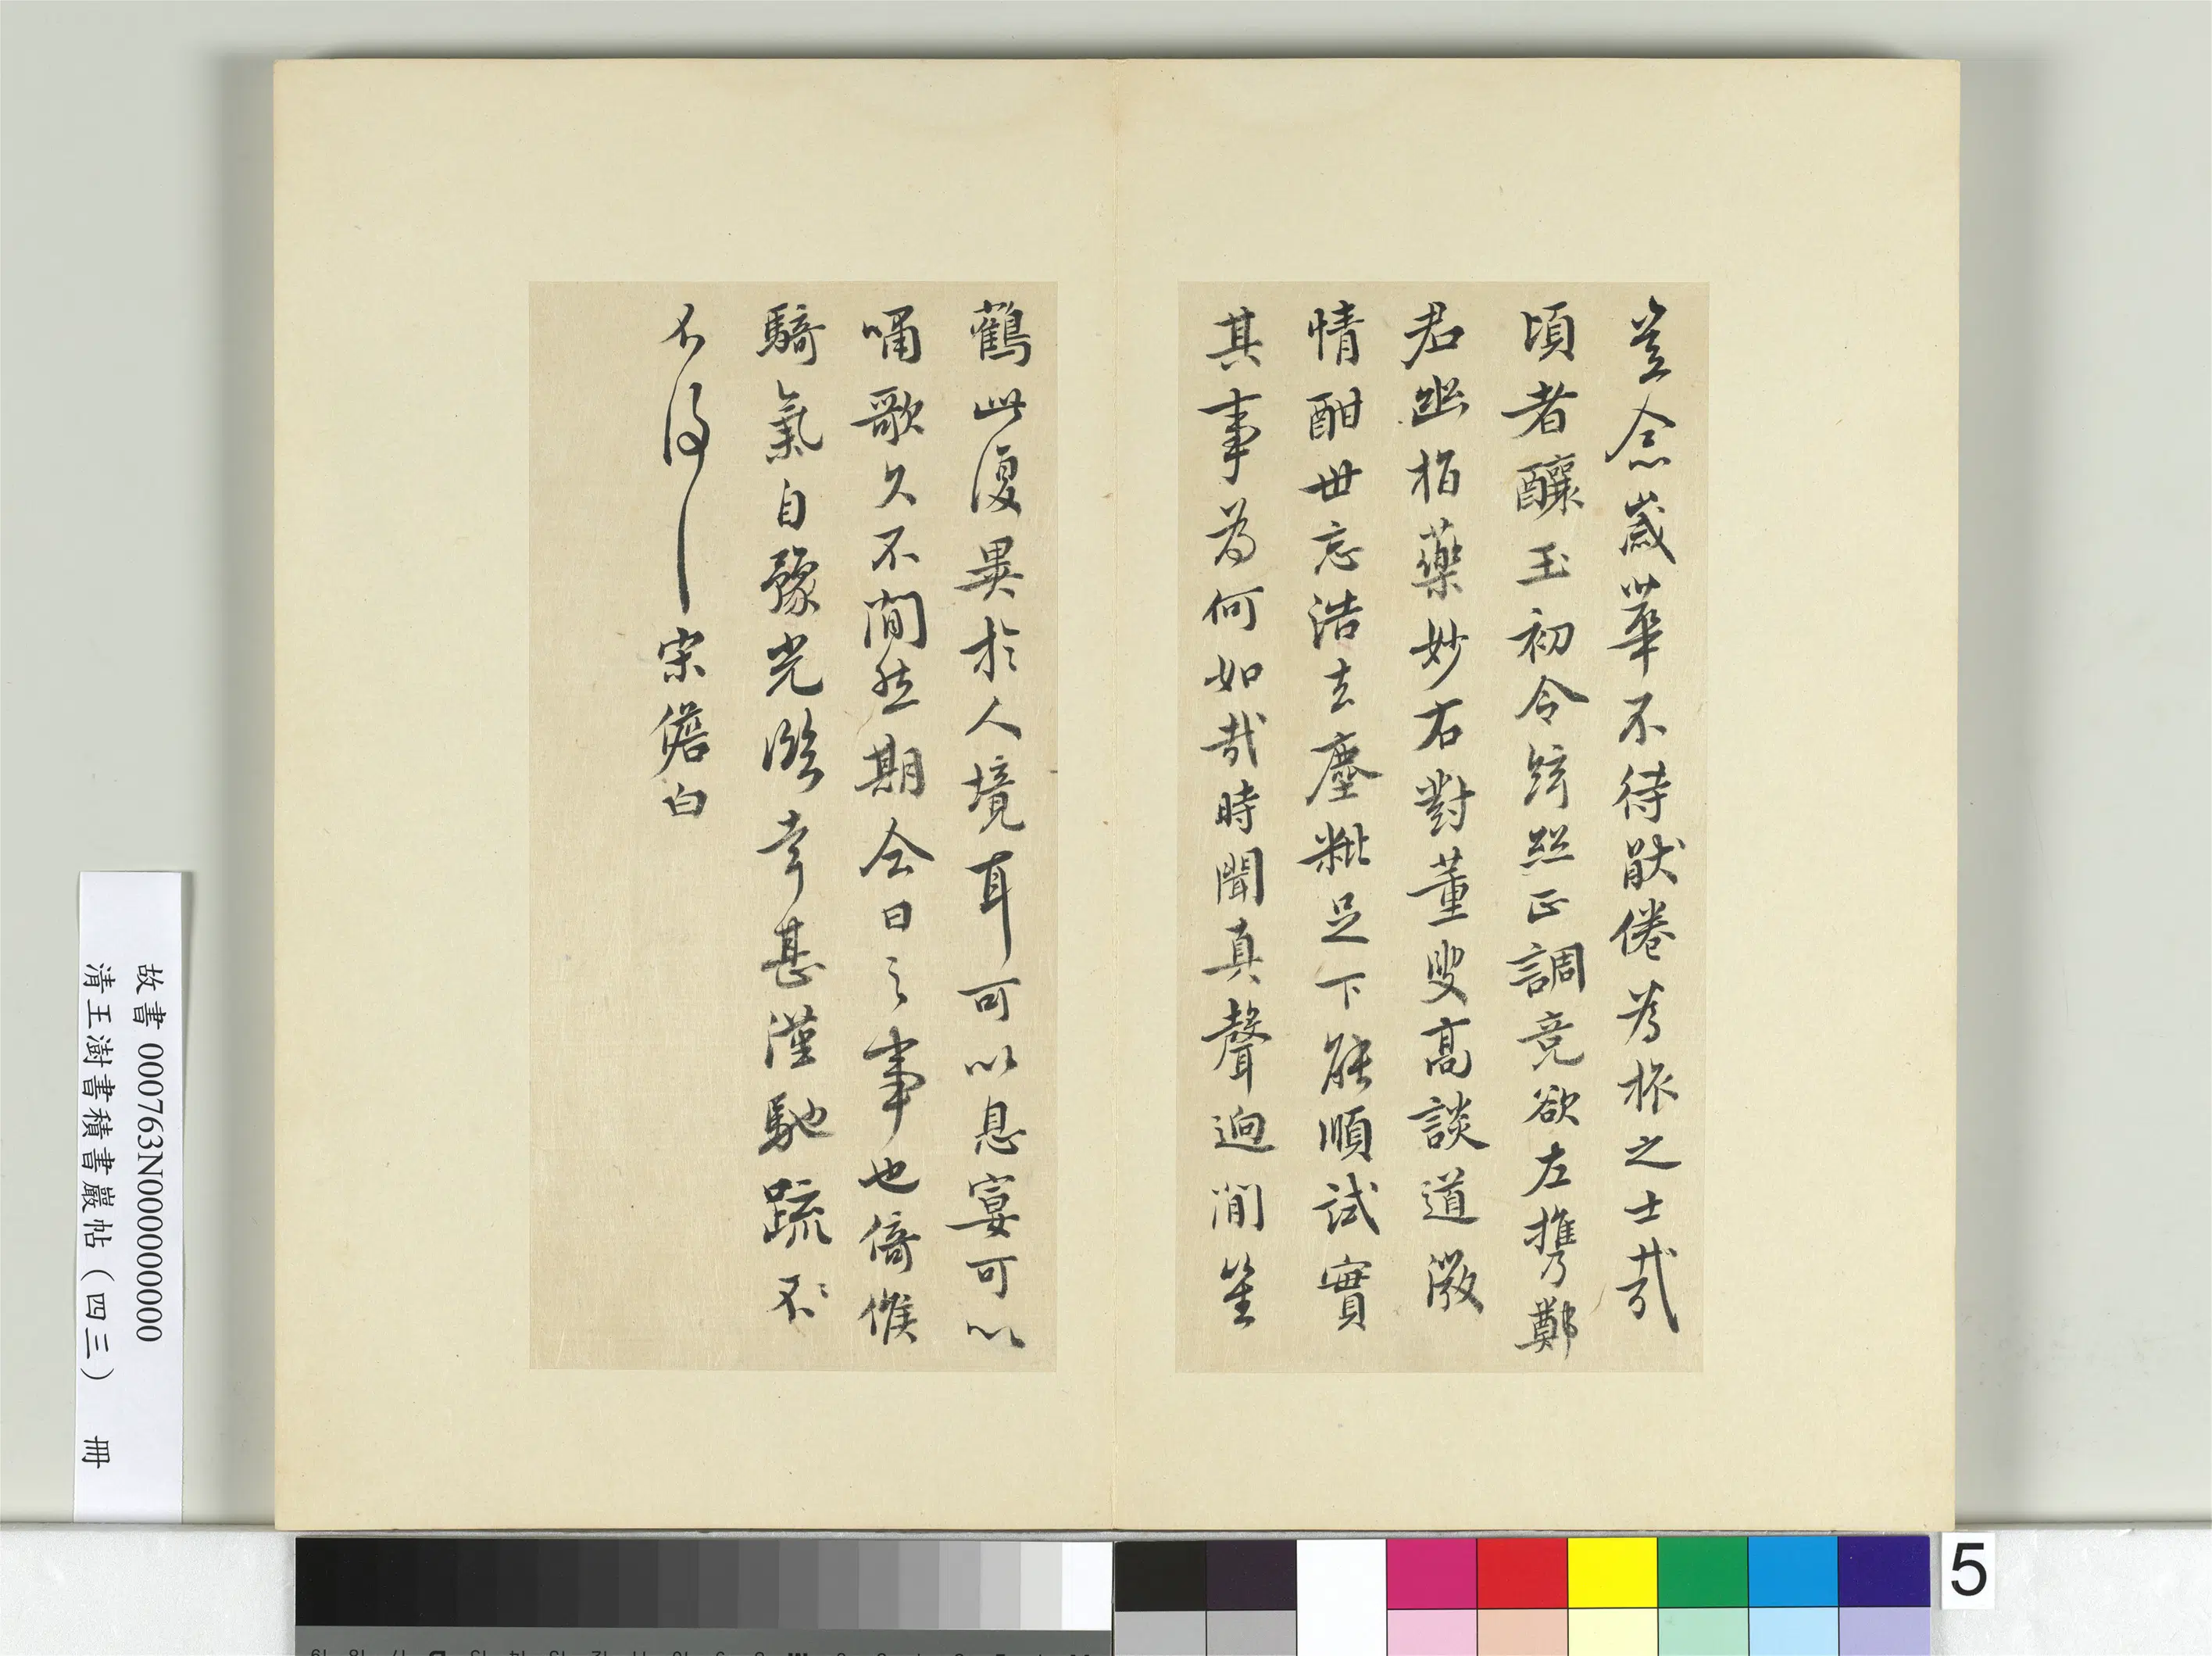 豈念歲華不待猒倦為旅之士哉
頃者釀玉初令絃絲正調竟欲左攜鄭
君幽指藥妙右對董叟高談道激
情酣世忘浩去塵粃足下能順試實
其事為何如哉時聞真聲迥澗笙
鶴此復異於人境耳可以息宴可以
嘯歌久不間然期今日之事也倚候
騎氣自豫光臨幸甚謹馳疏不〻
不得 宋儋白
故書 000763N000000000
清王澍書積書巖帖(四三) 冊
5